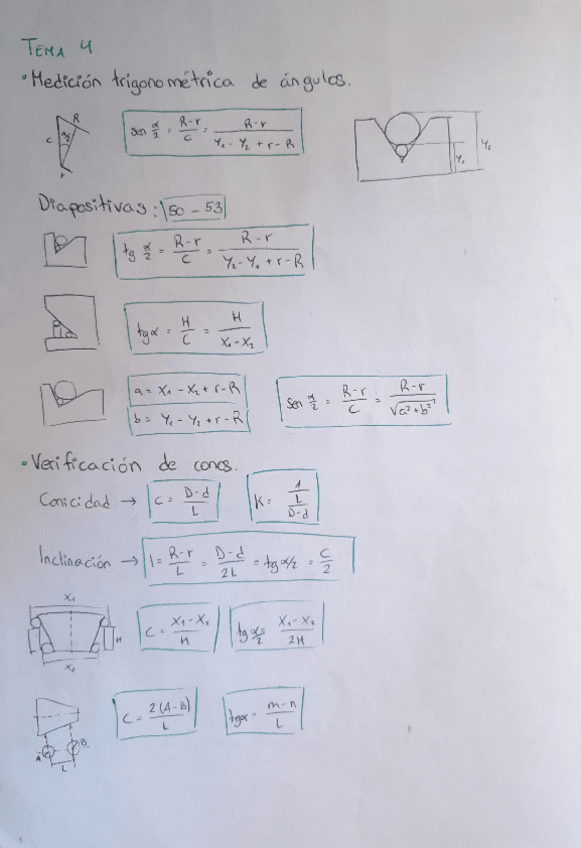 TEMA 4
• Medición trigonométrica de ángulos.
R
C
α/2
r
sen α/2 = (R-r)/C = (R-r)/(Y1 - Y2 + r - R)
Y1
Y2
Diapositivas: 50 - 53
tg α/2 = (R-r)/C = (R-r)/(Y2 - Y1 + r - R)
tg α = H/C = H/(X1 - X2)
a = X1 - X2 + r - R
b = Y1 - Y2 + r - R
sen α/2 = (R-r)/C = (R-r)/√(a² + b²)
• Verificación de conos.
Conicidad → C = (D-d)/L
K = 1/(L/(D-d))
Inclinación → I = (R-r)/L = (D-d)/2L = tg α/2 = C/2
X1
H
X2
C = (X1 - X2)/H
tg α/2 = (X1 - X2)/2H
A
B
L
C = 2(A-B)/L
tg α = (m-n)/L